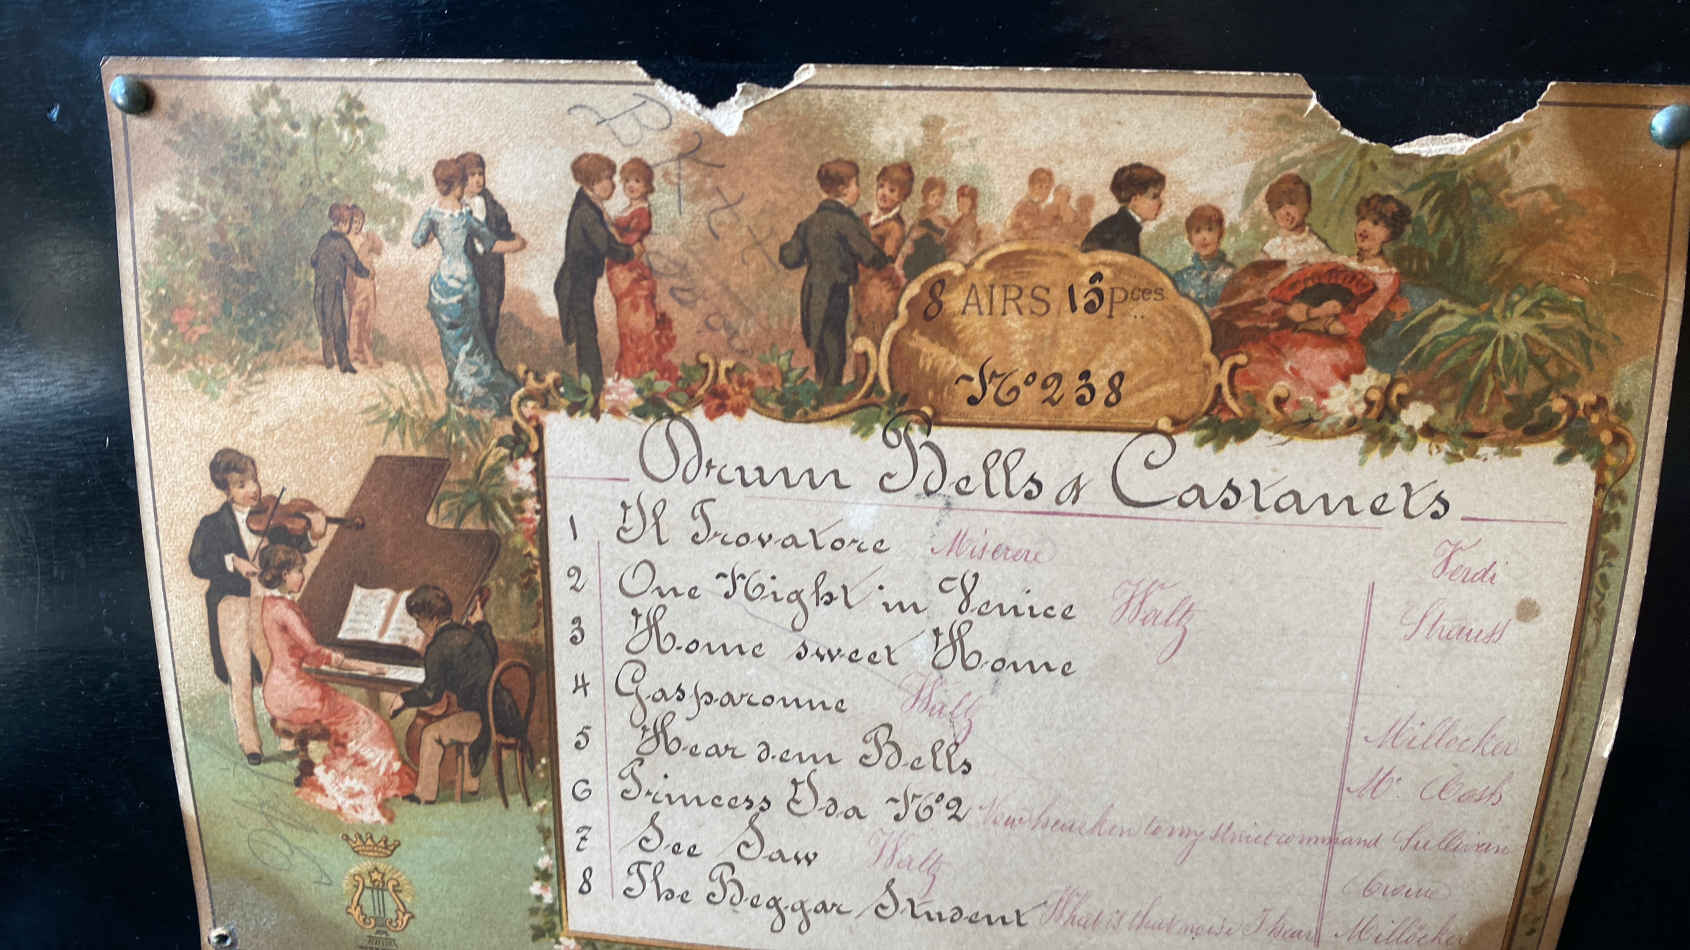 8 AIRS 13 Pces
No 238
Drum Bells & Castanets
1 Il Trovatore Miserere Verdi
2 One Night in Venice Waltz Strauss
3 Home sweet Home
4 Gasparonne Waltz Millocker
5 Hear dem Bells Mc Cosh
6 Princess Ida No 2 Now hearken to my strict command Sullivan
7 See Saw Waltz Crowe
8 The Beggar Student What is that noise I hear Millöcker